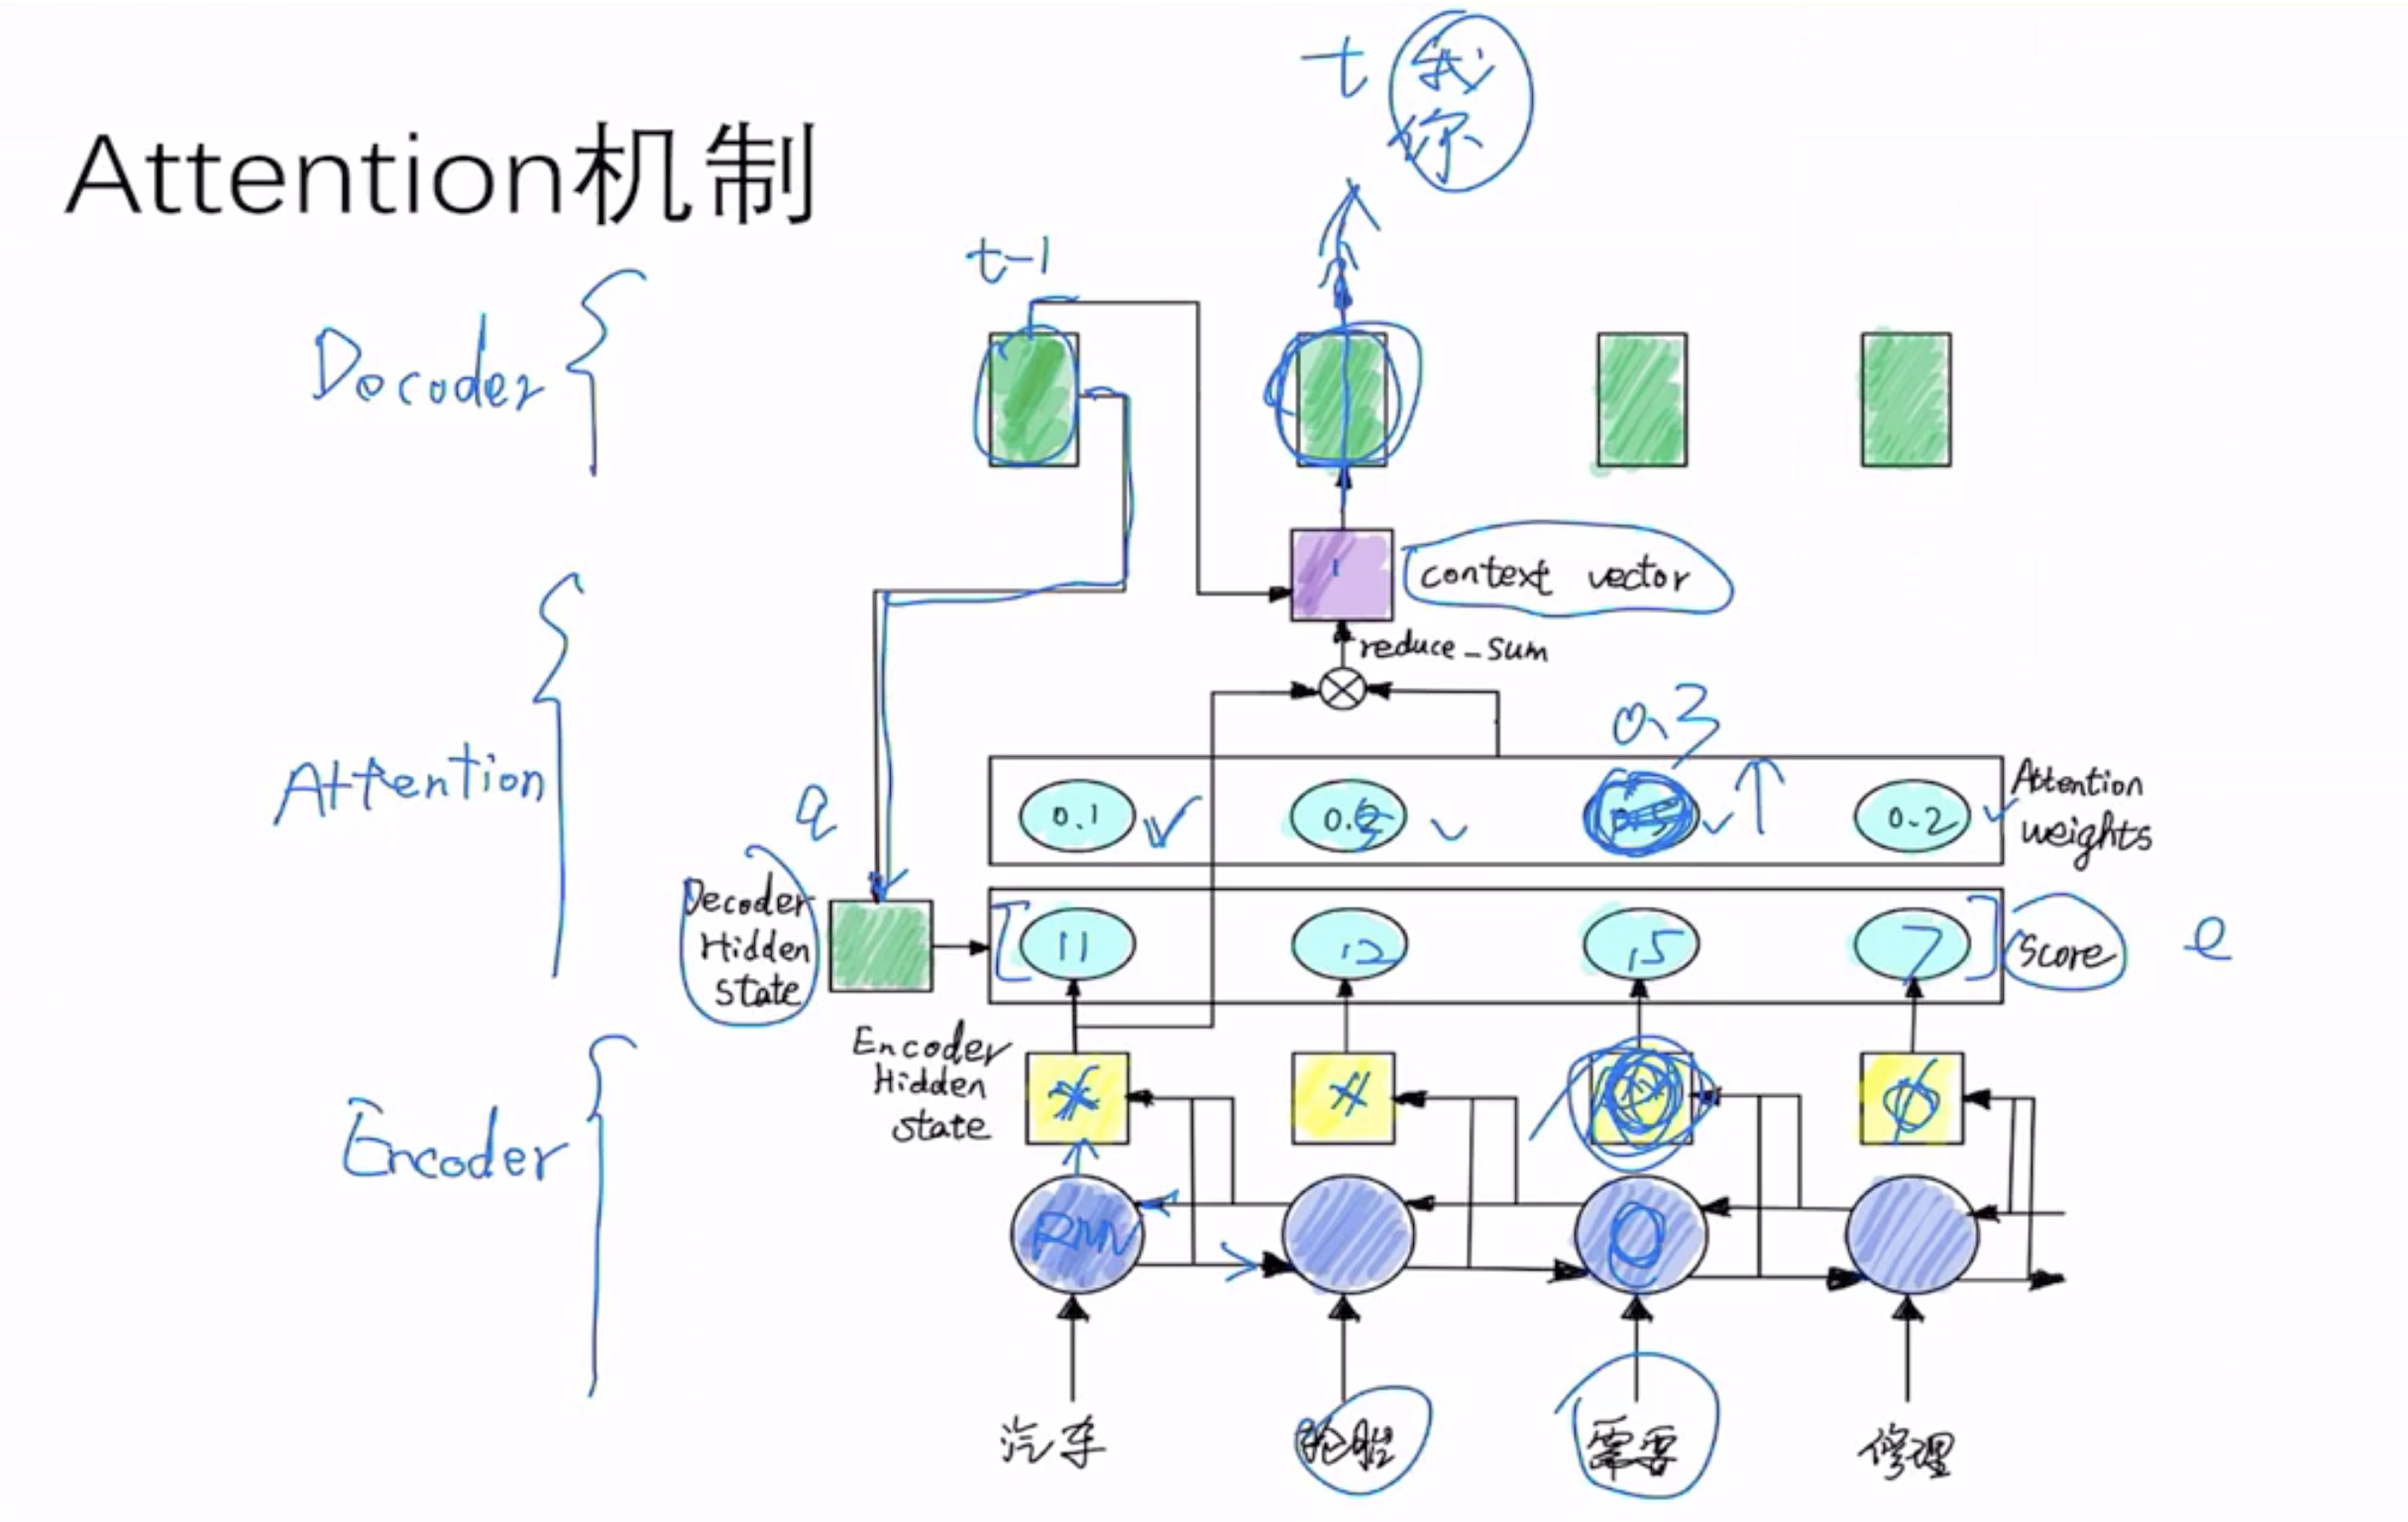 t 我
你
Attention机制
t-1
Decoder
context vector
reduce_sum
0.3
Attention
a
0.1
0.2
Attention
weights
Decoder
Hidden
state
11
12
15
7
Score
e
Encoder
Hidden
state
Encoder
RNN
汽车
轮胎
需要
修理